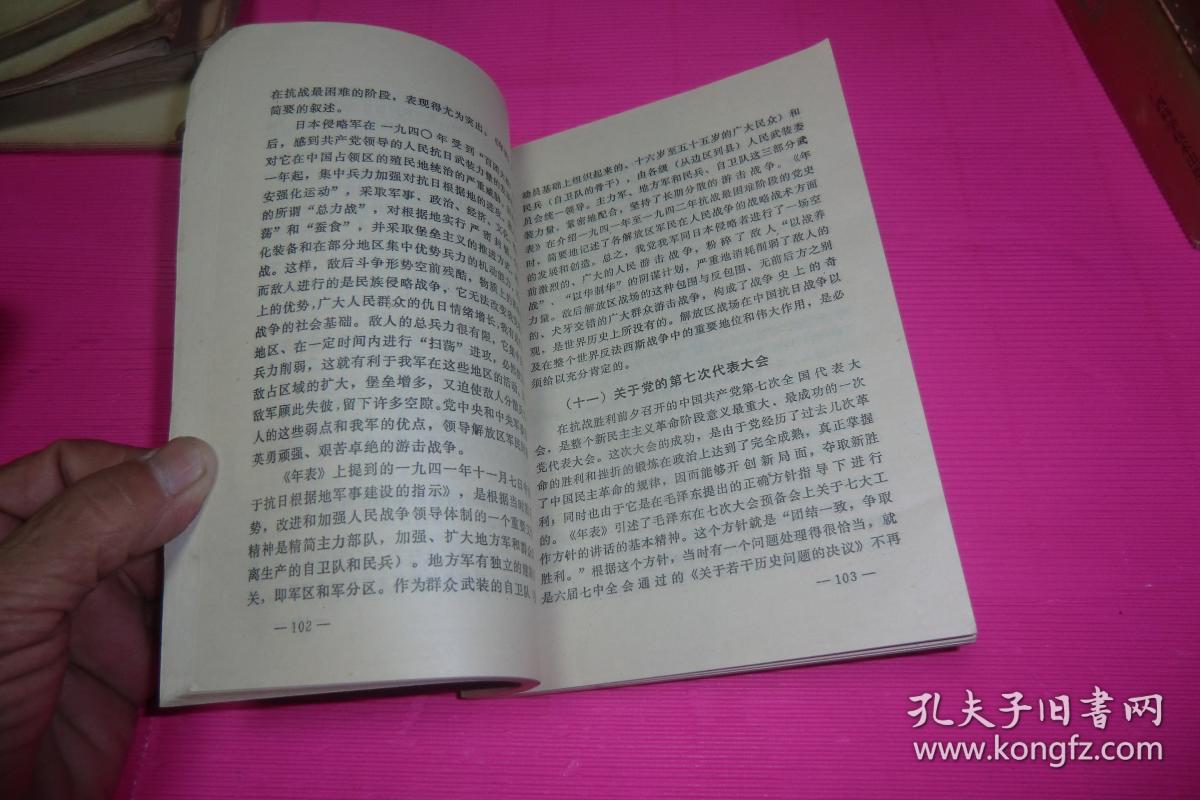 在抗战最困难的阶段，表现得尤为突出。
简要的叙述。
日本侵略军在一九四〇年受到“百团大
后，感到共产党领导的人民抗日武装力量的
对它在中国占领区的殖民地统治的严重威胁
一年起，集中兵力加强对抗日根据地的进攻，
安强化运动”，采取军事、政治、经济、文
的所谓“总力战”，对根据地实行严密封
荡”和“蚕食”，并采取堡垒主义的推进方式，
化装备和在部分地区集中优势兵力的机动能力，
战。这样，敌后斗争形势空前残酷，物质上的
而敌人进行的是民族侵略战争，它无法改变
上的优势，广大人民群众的仇日情绪增长，我
战争的社会基础。敌人的总兵力很有限，它集
地区、在一定时间内进行“扫荡”进攻，必
兵力削弱，这就有利于我军在这些地区的活动，
敌占区域的扩大，堡垒增多，又迫使敌人分散
敌军顾此失彼，留下许多空隙。党中央和中央军
人的这些弱点和我军的优点，领导解放区军民
英勇顽强、艰苦卓绝的游击战争。
《年表》上提到的一九四一年十一月七日中
于抗日根据地军事建设的指示》，是根据当时
势，改进和加强人民战争领导体制的一个重要
精神是精简主力部队，加强、扩大地方军和
离生产的自卫队和民兵）。地方军有独立的
关，即军区和军分区。作为群众武装的自卫队
—102—
动员基础上组织起来的、十六岁至五十五岁的广大民众）和
民兵（自卫队的骨干），由各级（从边区到县）人民武装委
员会统一领导。主力军、地方军和民兵、自卫队这三部分武
装力量，紧密地配合，坚持了长期分散的游击战争。《年
表》在介绍一九四一年至一九四二年抗战最困难阶段的党史
时，简要地记述了各解放区军民在人民战争的战略战术方面
的发展和创造。总之，我党我军同日本侵略者进行了一场空
前激烈的、广大的人民游击战争，粉碎了敌人“以战养
战”、“以华制华”的阴谋计划，严重地消耗削弱了敌人的
力量。敌后解放区战场的这种包围与反包围、无前后方之别
的、犬牙交错的广大群众游击战争，构成了战争史上的奇
观，是世界历史上所没有的。解放区战场在中国抗日战争以
及在整个世界反法西斯战争中的重要地位和伟大作用，是必
须给以充分肯定的。
（十一）关于党的第七次代表大会
在抗战胜利前夕召开的中国共产党第七次全国代表大
会，是整个新民主主义革命阶段意义最重大、最成功的一次
党代表大会。这次大会的成功，是由于党经历了过去几次革
命的胜利和挫折的锻炼在政治上达到了完全成熟，真正掌握
了中国民主革命的规律，因而能够开创新局面，夺取新胜
利；同时也由于它是在毛泽东提出的正确方针指导下进行
的。《年表》引述了毛泽东在七次大会预备会上关于七大工
作方针的讲话的基本精神。这个方针就是“团结一致，争取
胜利。”根据这个方针，当时有一个问题处理得很恰当，就
是六届七中全会通过的《关于若干历史问题的决议》不再
—103—
孔夫子旧书网
www.kongfz.com